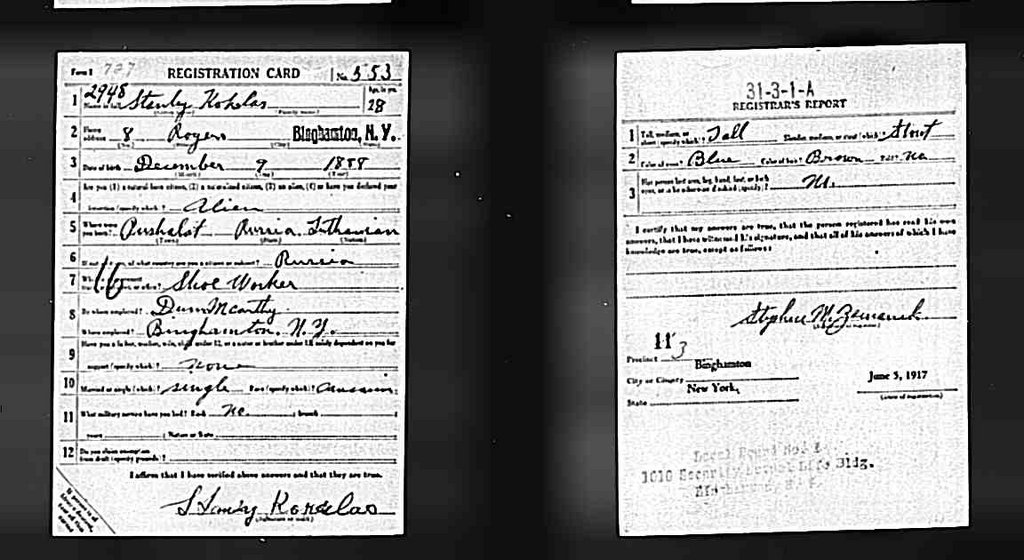 Form 1 727 REGISTRATION CARD No. 553
2948
1 Stanly Age, in yrs. 28
2 Home address 8 Rogers Binghamton, N.Y.
3 Date of birth December 9 1888
4 Are you (1) a natural born citizen, (2) a naturalized citizen, (3) an alien, (4) or have you declared your
intention (specify which)? Alien
5 Where were you born? Russia
(Town) (State) (Nation)
6 If not a citizen, of what country are you a citizen or subject? Russia
7 16 Shoe Worker
8 By whom employed?
Where employed? Binghamton, N.Y.
9 Have you a father, mother, wife, child under 12, or a sister or brother under 12, solely dependent on you for
support (specify which)? none
10 Married or single (which)? single Race (specify which)?
11 What military service have you had? Rank no ; branch ;
years ; Nation or State
12 Do you claim exemption from draft (specify grounds)?
I affirm that I have verified above answers and that they are true.
(Signature or mark)
31-3-1-A
REGISTRAR'S REPORT
1 Tall, medium, or short (specify which)? Tall Slender, medium, or stout (which)? Stout
2 Color of eyes? Blue Color of hair? Brown Bald? no
3 Has person lost arm, leg, hand, foot, or both eyes, or is he otherwise disabled (specify)?
I certify that my answers are true, that the person registered has read his own
answers, that I have witnessed his signature, and that all of his answers of which I have
knowledge are true, except as follows:
Stephen M.
11
3
Precinct
Binghamton
City or County
New York,
State
June 5, 1917
(Date of registration)
Local Board No. 1
1010 Security Mutual Life Bldg.
Binghamton, N. Y.